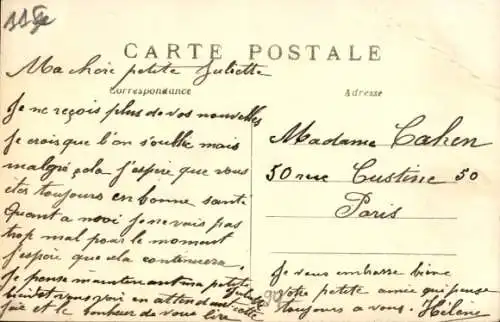 CARTE POSTALE
Ma chère petite Juliette
Correspondance
Adresse
Je ne reçois plus de vos nouvelles
Je crois que l'on s'oublie mais
malgré cela j'espère que vous
êtes toujours en bonne santé
Quant a moi je ne vais pas
trop mal pour le moment
j'espère que cela continuera.
Je pense maintenant ma petite Juliette
bientôt vous voir en attendant cette
joie et le bonheur de vous lire
Madame Cahen
50 rue Custine 50
Paris
Je vous embrasse bien
votre petite amie qui pense
toujours a vous. Hélène